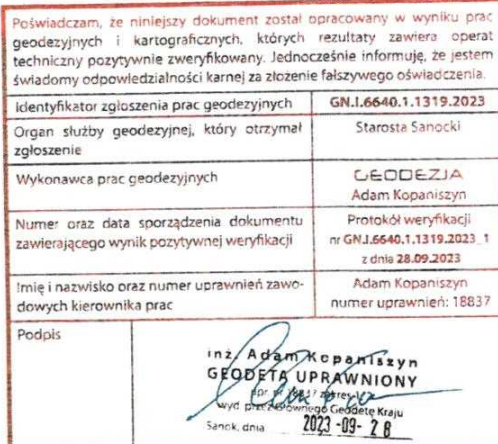 Poświadczam, że niniejszy dokument został opracowany w wyniku prac
geodezyjnych i kartograficznych, których rezultaty zawiera operat
techniczny pozytywnie zweryfikowany. Jednocześnie informuję, że jestem
świadomy odpowiedzialności karnej za złożenie fałszywego oświadczenia.
Identyfikator zgłoszenia prac geodezyjnych GN.I.6640.1.1319.2023
Organ służby geodezyjnej, który otrzymał Starosta Sanocki
zgłoszenie
Wykonawca prac geodezyjnych GEODEZJA
Adam Kopaniszyn
Numer oraz data sporządzenia dokumentu Protokół weryfikacji
zawierającego wynik pozytywnej weryfikacji nr GN.I.6640.1.1319.2023_1
z dnia 28.09.2023
Imię i nazwisko oraz numer uprawnień zawo- Adam Kopaniszyn
dowych kierownika prac numer uprawnień: 18837
Podpis
inż. Adam Kopaniszyn
GEODETA UPRAWNIONY
upr. nr 18837 zakres 1,2
wyd. przez Głównego Geodetę Kraju
Sanok, dnia 2023 -09- 28